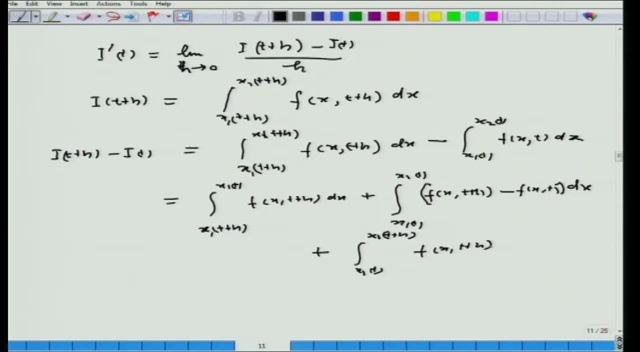 File Edit View Insert Actions Tools Help
I'(t) = lim h→0 (I(t+h) - I(t))/h
I(t+h) = ∫_{x₁(t+h)}^{x₂(t+h)} f(x, t+h) dx
I(t+h) - I(t) = ∫_{x₁(t+h)}^{x₂(t+h)} f(x, t+h) dx - ∫_{x₁(t)}^{x₂(t)} f(x, t) dx
= ∫_{x₁(t+h)}^{x₁(t)} f(x, t+h) dx + ∫_{x₁(t)}^{x₂(t)} (f(x, t+h) - f(x, t)) dx
+ ∫_{x₂(t)}^{x₂(t+h)} f(x, t+h)
11 / 25
11